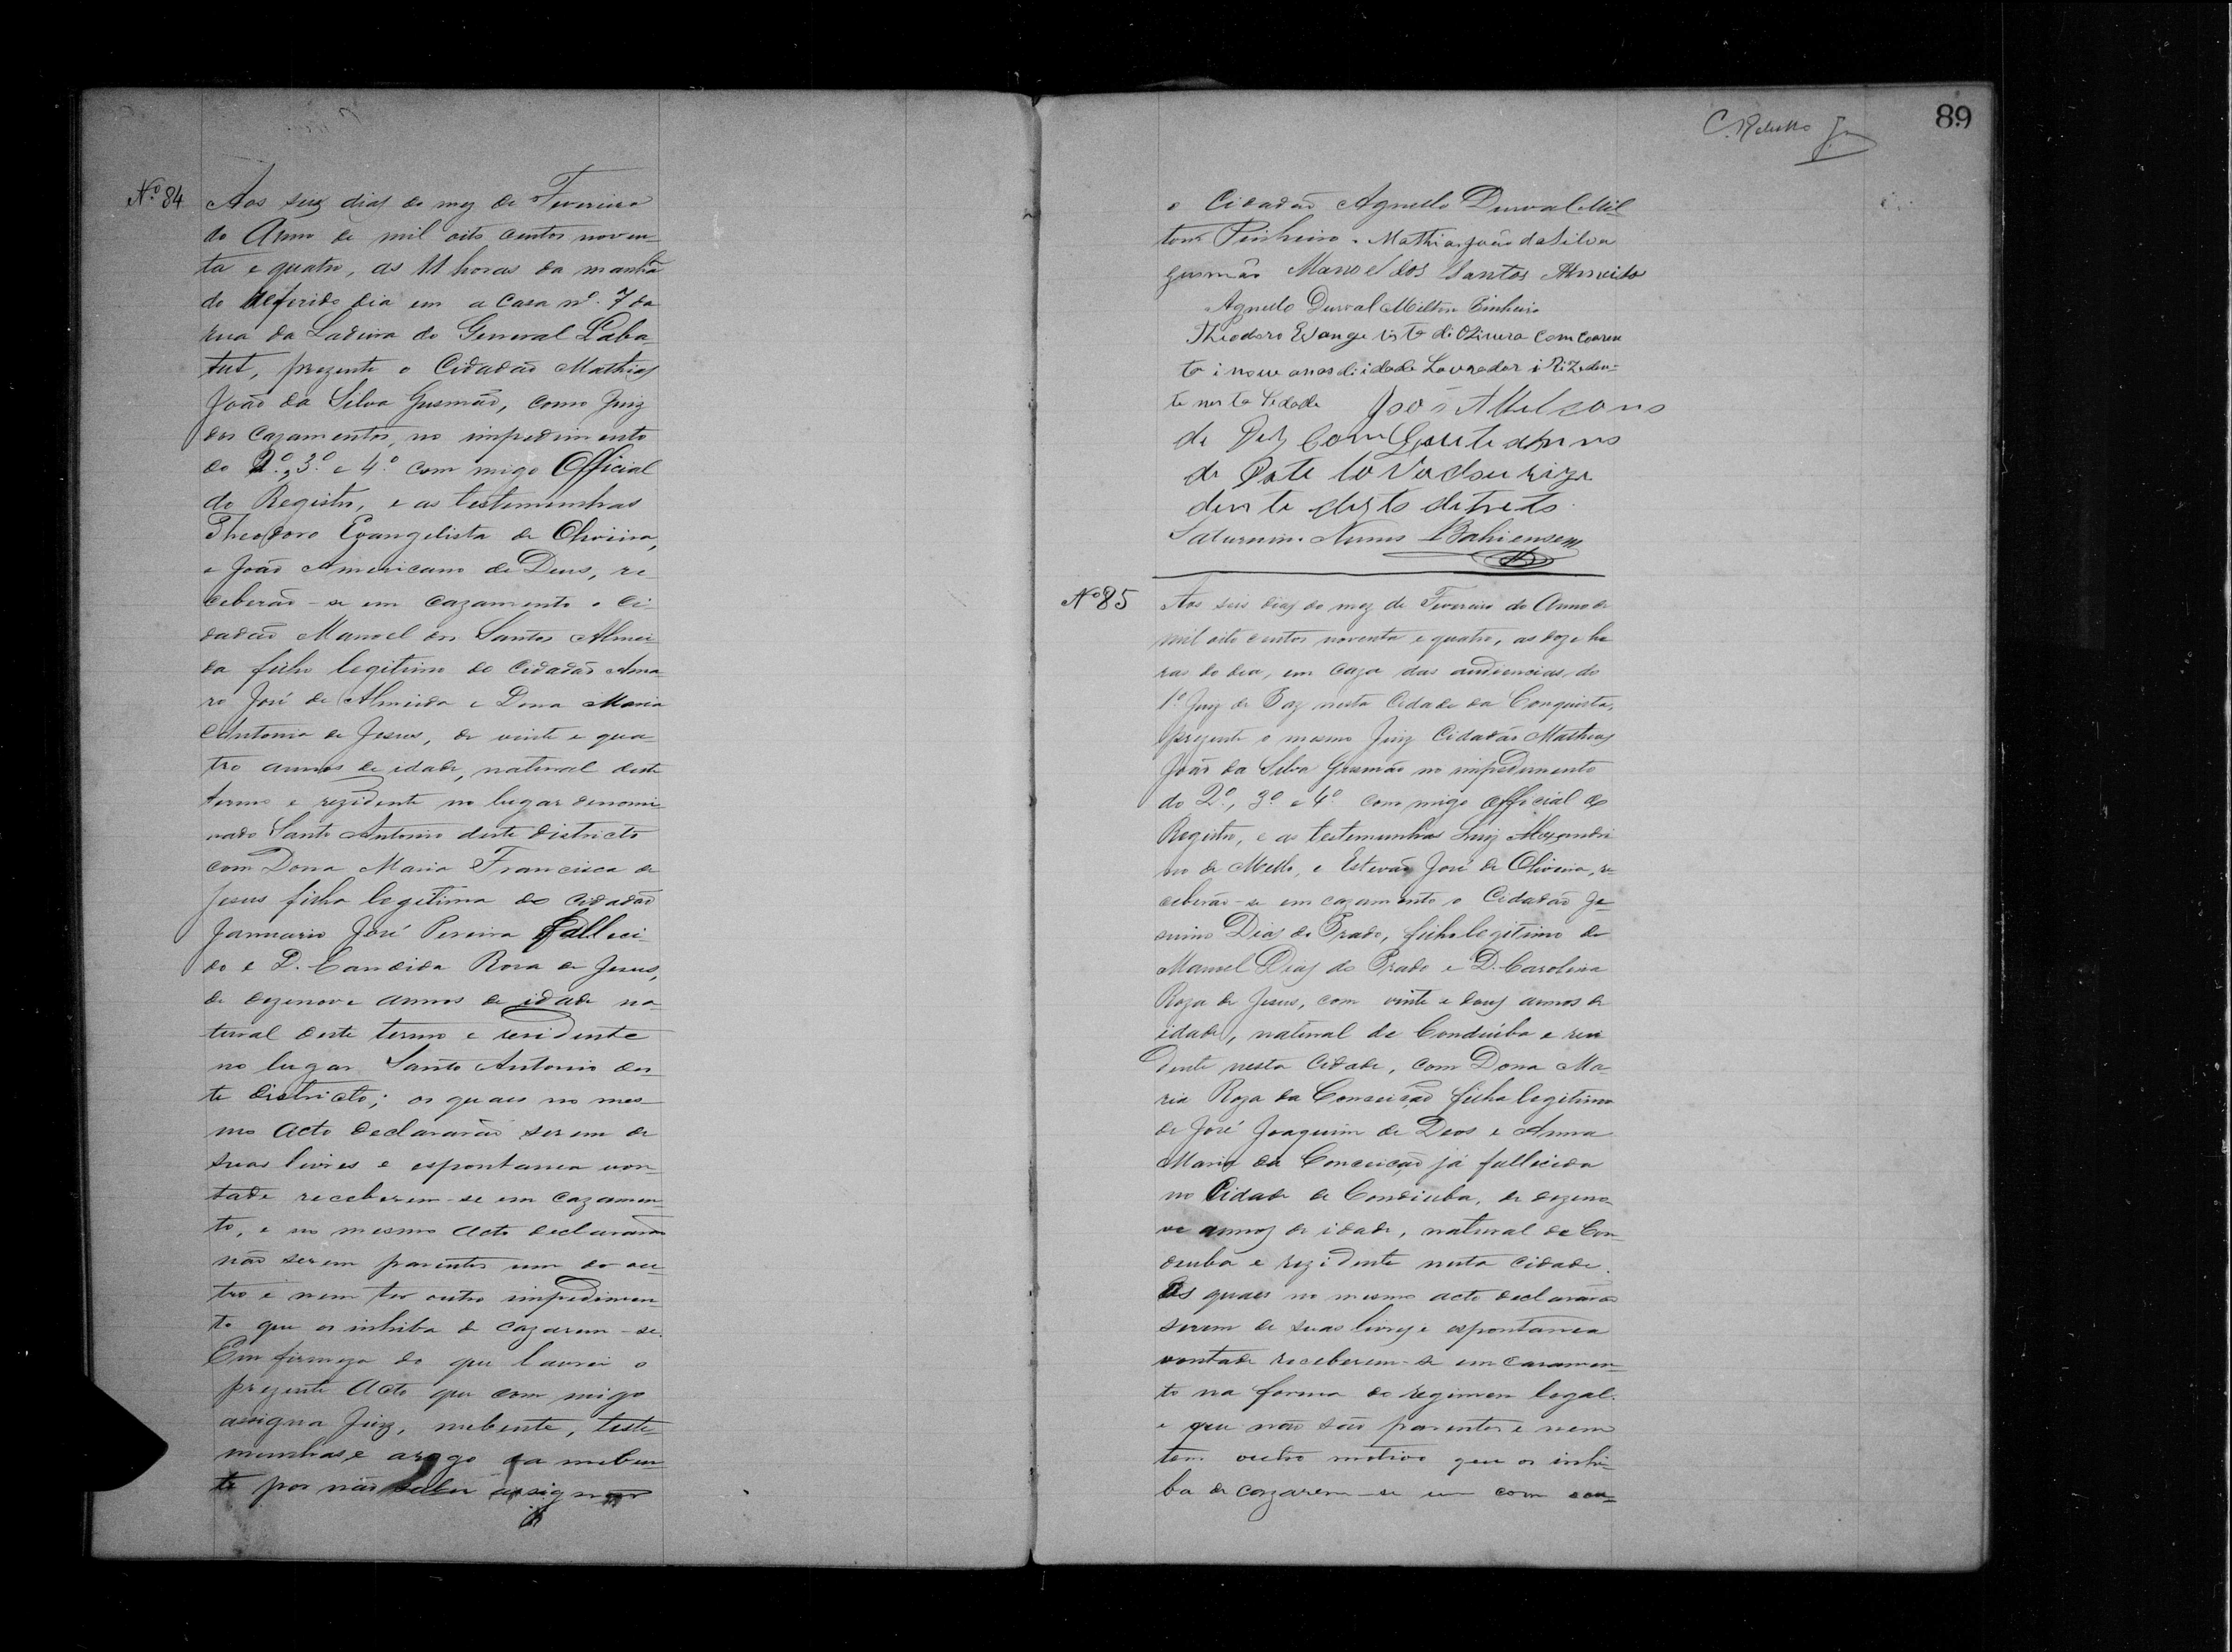 Nº 84 Aos seis dias do mez de Fevereiro
do Anno de mil oito centos noven-
ta e quatro, as 11 horas da manhã
do referido dia em a Casa nº. 7 da
rua da Ladeira do General Laba-
tut, prezente o Cidadão Mathias
João da Silva Gusmão, como Juiz
dos Cazamentos, no impedimento
do 2º., 3º. e 4º. com migo Official
do Registro, e as testemunhas
Theodoro Evangelista de Oliveira,
e João Americano de Deus, re
ceberão-se em cazamento o Ci-
dadão Manoel dos Santos Almei-
da filho legitimo do Cidadão Ama-
ro José de Almeida e Dona Maria
Antonia de Jesus, de vinte e qua-
tro annos de idade, natural deste
termo e rezidente no lugar denomi
nado Santo Antonio deste districto
com Dona Maria Francisca de
Jesus filha legitima do cidadão
Januario José Pereira falleci-
do e D. Candida Rosa de Jesus,
de dezenove annos de idade na-
tural deste termo e residente
no lugar Santo Antonio des-
te districto; os quaes no mes-
mo acto declararão serem de
suas livres e espontanea von-
tade receberem-se em cazamen-
to, e no mesmo acto declararão
não serem parentes um do ou-
tro e nem ter outro impedimen-
to que os inhiba de cazarem-se.
Em firmeza do que lavrei o
prezente acto que com migo
assigna Juiz, nubente, teste
munhas e arogo da nuben-
te por não saber assignar
C. Rebello Jr
89
o Cidadão Agnello Durval Mil-
ton Pinheiro. Mathias João da Silva
gusmão Manoel dos Santos Almeida
Agnello Durval Milton Pinheiro
Theodoro Evangelista di Olivera com coaren
ta i nove anos di idade Lavrador i Rizeden-
te nesta Sidade João
de
de
dente deste
Saturnino Nunes Bahiense
Nº 85 Aos seis dias do mez de Fevereiro do Anno de
mil oito centos noventa e quatro, as doze ho
ras do dia, em caza das audiencias do
1º. Juiz de Paz nesta Cidade da Conquista,
prezente o mesmo Juiz Cidadão Mathias
João da Silva Gusmão no impedimento
do 2º., 3º. e 4º. com migo official do
Registro, e as testemunhas Luiz Alexandri
no de Mello, e Estevão José de Oliveira, re
ceberão-se em cazamento o Cidadão Je-
suino Dias do Prado, filho legitimo de
Manoel Dias do Prado e D. Carolina
Roza de Jesus, com vinte e dous annos de
idade, natural de Condeúba e resi
dente nesta Cidade, com Dona Ma-
ria Roza da Conceição filha legitima
de José Joaquim de Deos e Anna
Maria da Conceição já fallecida
na Cidade de Condeuba, de dezeno-
ve annos de idade, natural de Con-
deuba e rezidente nesta cidade.
Os quaes no mesmo acto declararão
serem de suas livres e espontanea
vontade receberem-se em casamen-
to na forma do regimen legal.
e que não são parentes e nem
tem outro motivo que os inhi-
ba de cazarem-se um com o ou-